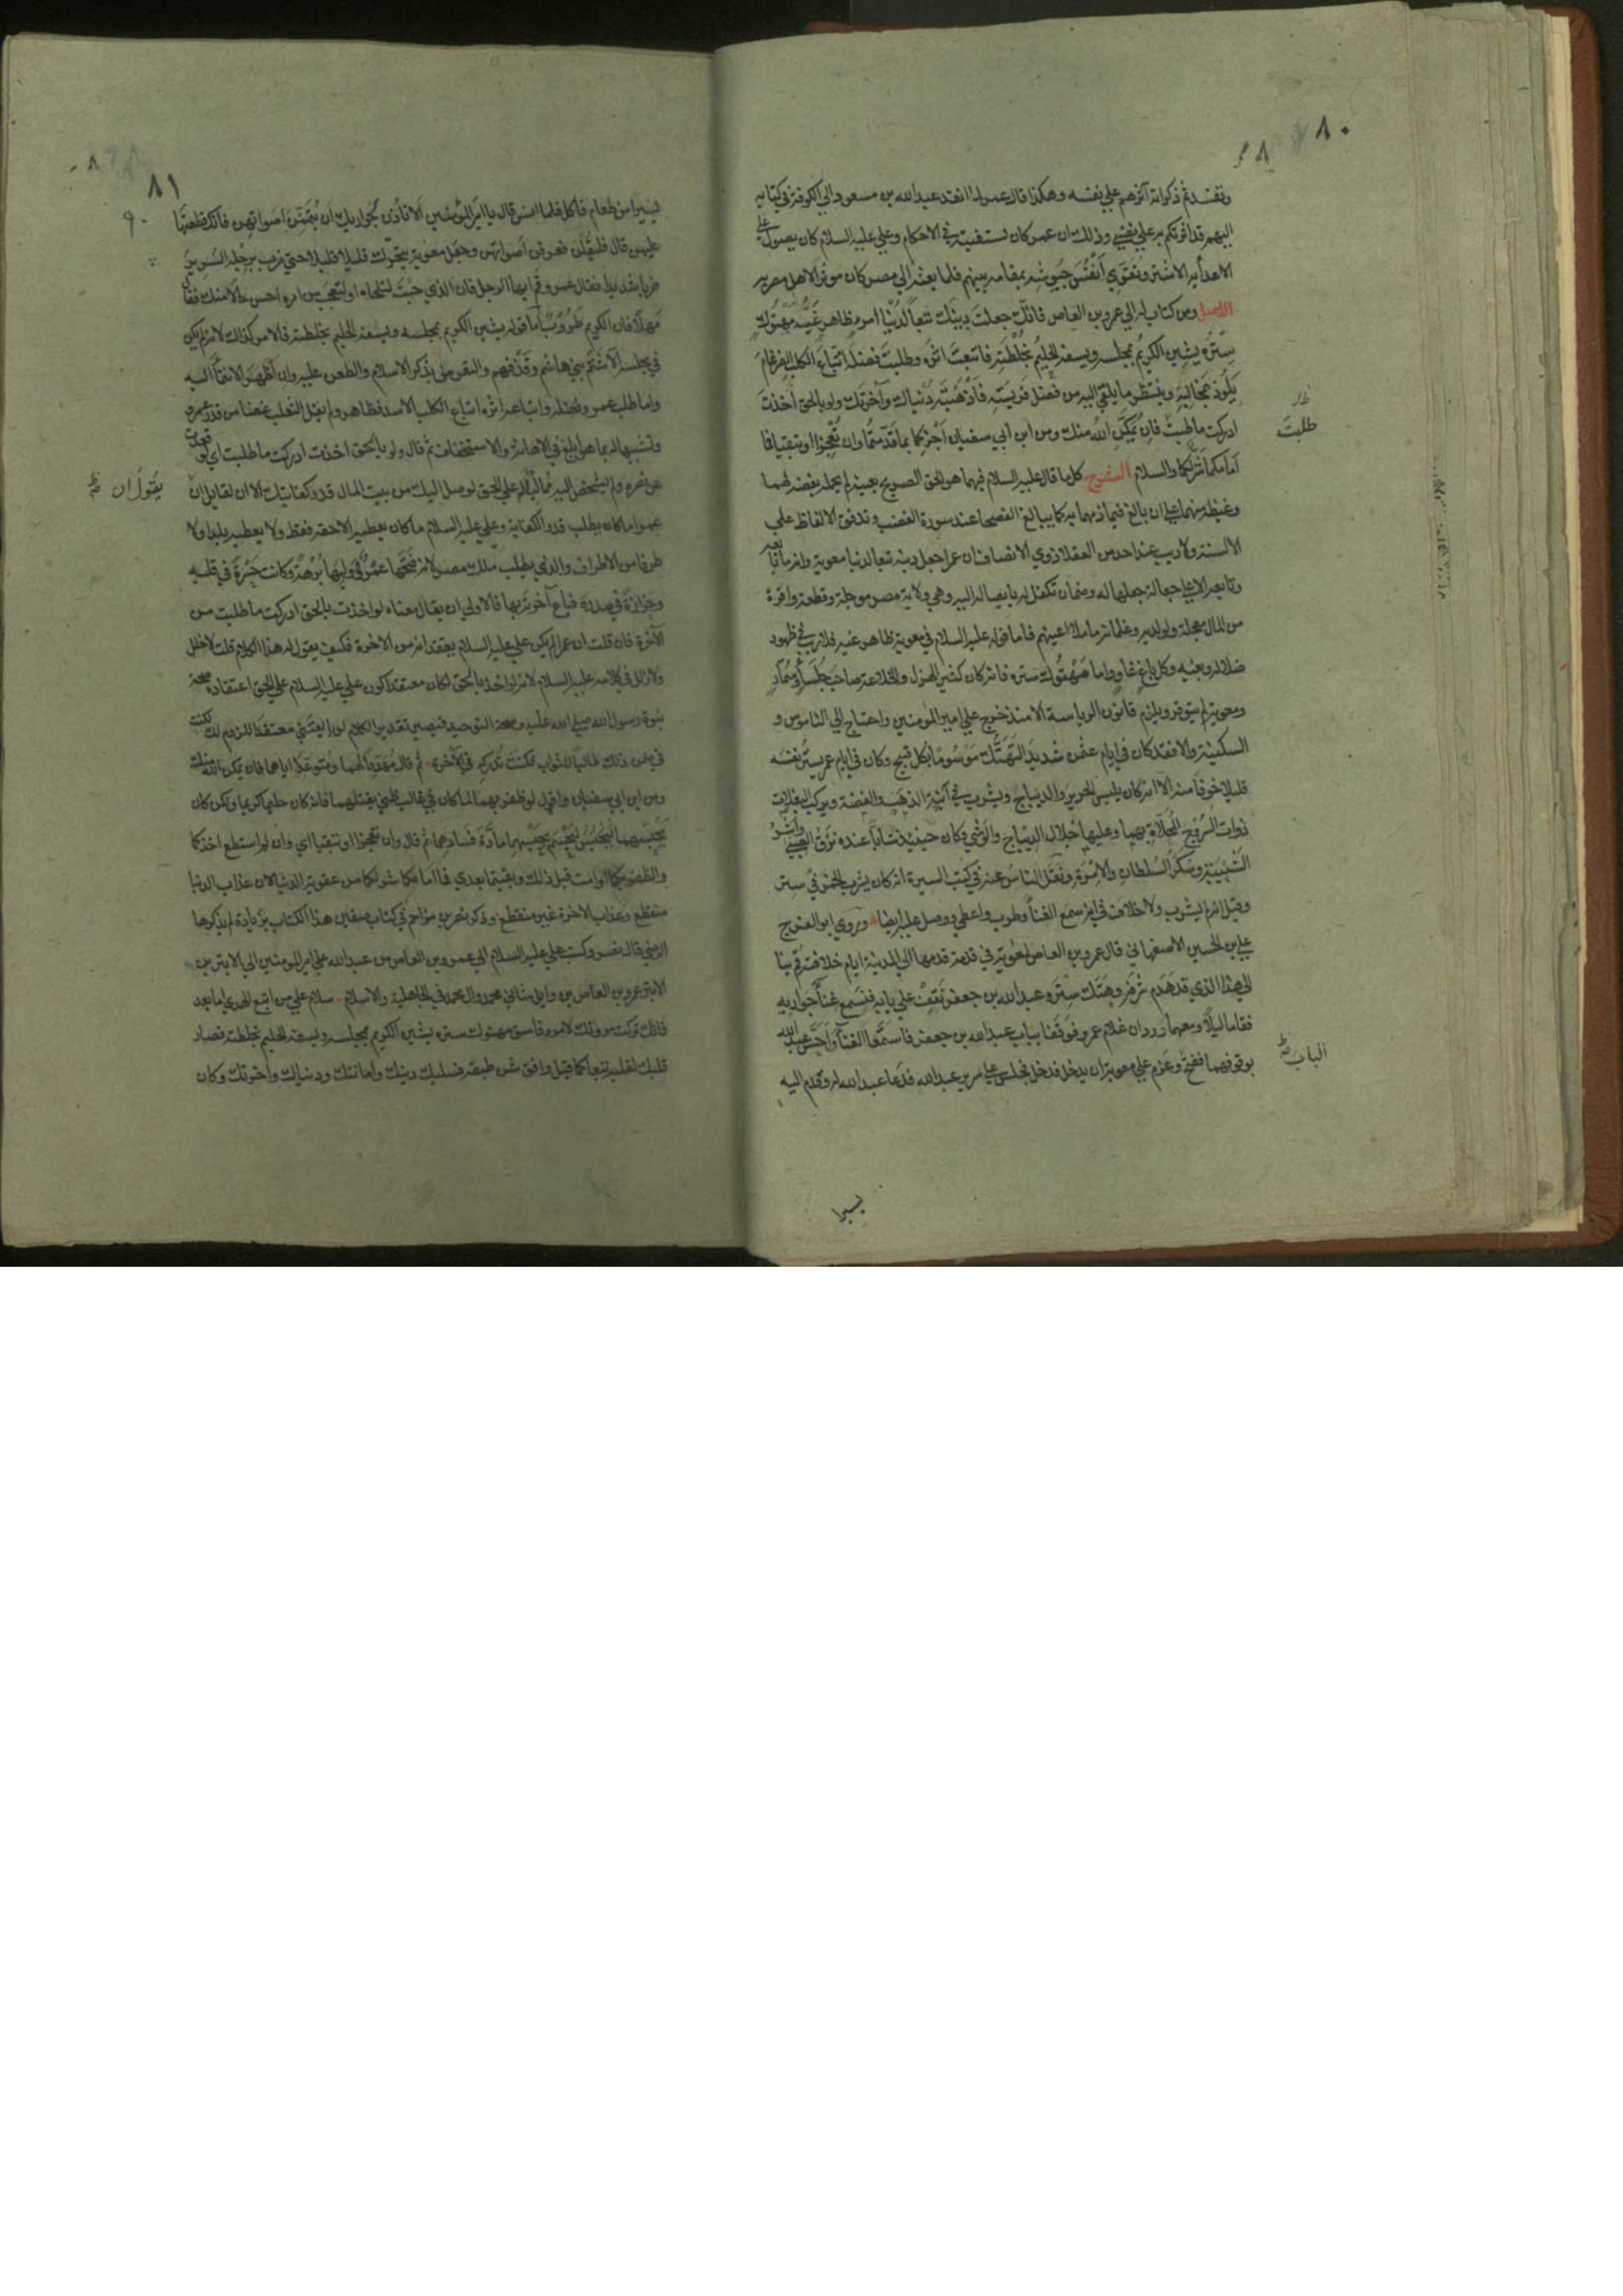 ٨٠
٨١
وتفسد ثم ذكر انه آثرهم علي نفسه وهكذا قال عمر لما انفذ عبد الله بن مسعود الي الكوفة في كتابه
اليهم قد اثرتكم به علي نفسي وذلك ان عمر كان يستفتيه في الاحكام وعلي عليه السلام كان يصول علي
الاعدأ بالاشتر ويقوي أنفُس جيوشه بمقامه بينهم فلما بعثه الي مصر كان موثرا لاهل مصر به
الاصل ومن كتاب له الي عمرو بن العاص فانك جعلت دينك تبعاً لدُنْيا امرء ظاهر غيّه مهتوك
ستره يشين الكريم بمجلسه ويسفه الحليم بخلطته فاتبعت اثره وطلبت فضله اتباع الكلب للضرغام
يلوذ بمخالبه وينتظر ما يلقي اليه من فضل فريسته فاذهبت دنياك وآخرتك ولو بالحق اخذت
ادركت ما طلبت فان يمكن الله منك ومن ابن ابي سفيان أجزكما بما قدمتما وان تعجزا او تبقيا فما
امامكما شر لكما والسلام الشرح كلما قال عليه السلام فيهما هو الحق الصريح بعينه لم يحمله بغضه لهما
وغيظه منهما علي ان بالغ فيما ذمهما به كما يبالغ الفصحا عند سورة الغضب وتدفق الالفاظ علي
الالسنة ولا ريب عند احد من العقلا ذوي الانصاف ان عمرا جعل دينه تبعا لدنيا معوية وانه ما بايعه
وتابعه الا علي جعالة جعلها له وضمان تكفل له بايصاله اليه وهي ولاية مصر موجلة وقطعة وافرة
من المال معجلة ولولديه وغلمانه ما ملا اعينهم فاما قوله عليه السلام في معوية ظاهر غيه فلا ريب في ظهور
ضلاله وبغيه وكل باغ غاو واما مهتوك ستره فانه كان كثير الهزل والخلاعة صاحب جلسأ وسمار
ومعوية لم يتوقر ويلزم قانون الرياسة الا منذ خرج علي امير المومنين واحتاج الي الناموس و
السكينة والا فقد كان في ايام عثمن شديد التهتك موسوما بكل قبيح وكان في ايام عمر يستر نفسه
قليلا خوفا منه الا انه كان يلبس الحرير والديباج ويشرب في آنية الذهب والفضة ويركب البغلات
ذوات السروج المحلاة بهما وعليها جلال الديباج والوشي وكان حينيذ شابا عنده نزق الصبي واشر
الشبيبة وسكر السلطان والامرة ونقل الناس عنه في كتب السيرة انه كان يشرب الخمر في ستر
وقيل انه لم يشرب ولا خلاف في انه سمع الغنأ وطرب واعطي ووصل عليه ايضا وروي ابو الفرج
علي بن الحسين الاصفهاني قال عمرو بن العاص لمعوية في قدمة قدمها الي المدينة ايام خلافته قم بنا
الي هذا الذي قد هدم شرفه وهتك ستره عبد الله بن جعفر نقف علي بابه فنسمع غنأ جواريه
فقاما ليلا ومعهما وردان غلام عمرو فوقفا بباب عبد الله بن جعفر فاستمعا الغنأ واحس عبد الله
بوقوفهما ففتح وعزم علي معوية ان يدخل فدخل فجلس علي سرير عبد الله فدعا عبد الله له وقدم اليه
طلبت
الباب
يسيرا
٩٠
يسيرا من طعام فاكل فلما انس قال يا امير المؤمنين الا تأذن لجواريك ان يتممن اصواتهن فانك قطعتها
عليهن قال فليقلن فرفعن اصواتهن وجعل معوية يتحرك قليلا قليلا حتي ضرب برجله السرير
ضربا شديدا فقال عمرو قم ايها الرجل فان الذي جيت لتلحاه او لتعجب من امره احسن حالا منك فقال
مهلا فان الكريم طروب اما قوله يشين الكريم بمجلسه ويسفه الحليم بخلطته فالامر كذلك لانه لم يكن
في مجلسه الا شتم بني هاشم وقذفهم والتعرض بذكر الاسلام والطعن عليه وان أظهر الانتمأ اليه
واما طلب عمرو فضله واتباعه اثره اتباع الكلب الاسد فظاهر ولم يقل الثعلب غضا من قدر عمرو
وتشبيها له بما هو ابلغ في الاهانة والاستخفاف ثم قال ولو بالحق اخذت ادركت ما طلبت اي لو قعدت
عن نصره ولم تشخص اليه ممالئا له علي الحق لوصل اليك من بيت المال قدر كفايتك الا ان لقايل ان
عمرا ما كان يطلب قدر الكفاية وعلي عليه السلام ما كان يعطيه الا حقه فقط ولا يعطيه بلدا ولا
طرفا من الاطراف والذي يطلب ملك مصر لانه فتحها عمر وليها برهة وكانت حسرة في قلبه
وحزازة في صدره فباع آخرته بها فالاولي ان يقال معناه لو اخذت بالحق ادركت ما طلبت من
الآخرة فان قلت ان عمرا لم يكن علي عليه السلام يعتقد انه من الآخرة فكيف يقول له هذا الكلام قلت لا خلل
ولا زلل في كلامه عليه السلام لانه لو اخذ بالحق لكان معتقدا كون علي عليه السلام علي الحق اعتقاده صحة
نبوة رسول الله صلي الله عليه وصحة التوحيد فيصير تقدير الكلام لو بايعتني معتقدا للزوم لك لكنت
في ضمن ذلك طالبا للثواب فكنت تدركه في الآخرة ثم قال مهددا لهما ومتوعدا اياهما فان يمكن الله منك
ومن ابن ابي سفيان واقول لو ظفر بهما لما كان في غالب ظني يقتلهما فانه كان حليما كريما ولكن كان
يحبسهما ليحسم بحبسهما مادة فسادهما ثم قال وان تعجزا او تبقيا اي وان لم استطع اخذكما
والظفر بكما او امت قبل ذلك وبقيتما بعدي فما امامكما شر لكما من عقوبة الدنيا لان عذاب الدنيا
منقطع وعذاب الاخرة غير منقطع وذكر نصر بن مزاحم في كتاب صفين هذا الكتاب بزيادة لم يذكرها
الرضي قال نصر وكتب علي عليه السلام الي عمرو بن العاص من عبد الله علي امير المومنين الي الابتر بن
الابتر عمرو بن العاص بن وايل شاني محمد وال محمد في الجاهلية والاسلام سلام علي من اتبع الهدي اما بعد
فانك تركت مروتك لامرء فاسق مهتوك ستره يشين الكريم بمجلسه ويسفه الحليم بخلطته فصار
قلبك لقلبه تبعا كما قيل وافق شن طبقه فسلبك دينك وامانتك ودنياك واخرتك وكان
يقول ان